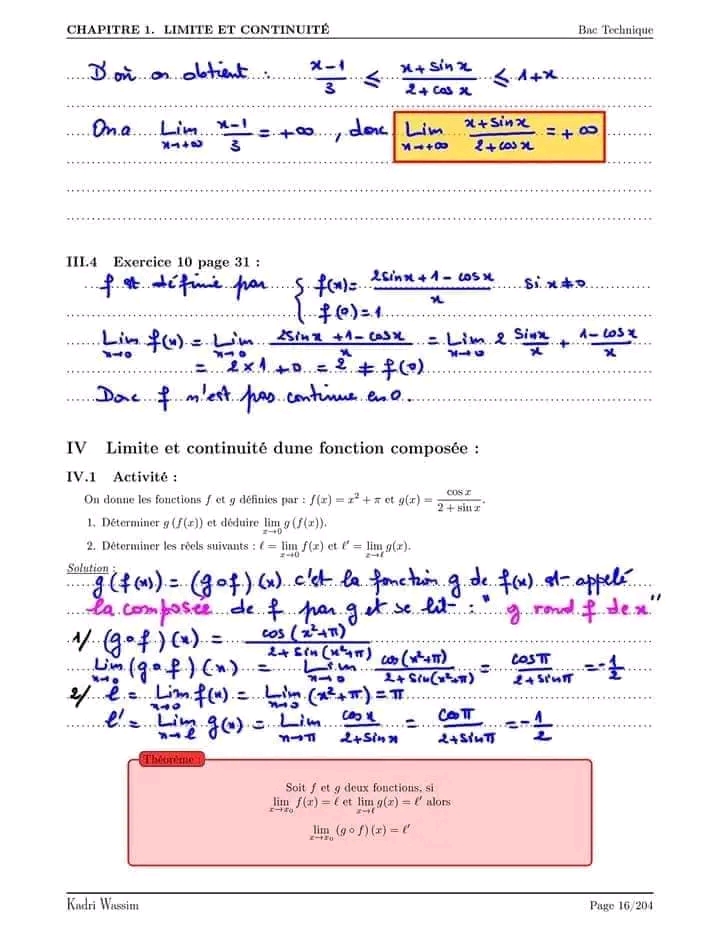 CHAPITRE 1. LIMITE ET CONTINUITÉ Bac Technique
D'où on obtient : (x-1)/3 ≤ (x+sin x)/(2+cos x) ≤ 1+x
On a Lim x→+∞ (x-1)/3 = +∞, donc Lim x→+∞ (x+sin x)/(2+cos x) = +∞
III.4 Exercice 10 page 31 :
f est définie par { f(x) = (2sin x + 1 - cos x)/x si x≠0
f(0) = 1
Lim x→0 f(x) = Lim x→0 (2sin x + 1 - cos x)/x = Lim x→0 2 sin x/x + (1-cos x)/x
= 2×1+0 = 2 ≠ f(0)
Donc f n'est pas continue en 0.
IV Limite et continuité dune fonction composée :
IV.1 Activité :
On donne les fonctions f et g définies par : f(x) = x² + π et g(x) = cos x/(2 + sin x).
1. Déterminer g (f(x)) et déduire lim x→0 g (f(x)).
2. Déterminer les réels suivants : ℓ = lim x→0 f(x) et ℓ′ = lim x→ℓ g(x).
Solution :
g(f(x)) = (g∘f)(x) c'et la fonction g de f(x) est appelé
la composée de f par g et se lit : " g rond f de x"
1/ (g∘f)(x) = cos(x²+π)/(2+sin(x²+π))
Lim x→0 (g∘f)(x) = Lim x→0 cos(x²+π)/(2+sin(x²+π)) = cosπ/(2+sinπ) = -1/2
2/ ℓ = Lim x→0 f(x) = Lim x→0 (x²+π) = π
ℓ' = Lim x→ℓ g(x) = Lim x→π cos x/(2+sin x) = cosπ/(2+sinπ) = -1/2
Théorème :
Soit f et g deux fonctions, si
lim x→x₀ f(x) = ℓ et lim x→ℓ g(x) = ℓ′ alors
lim x→x₀ (g ∘ f) (x) = ℓ′
Kadri Wassim Page 16/204